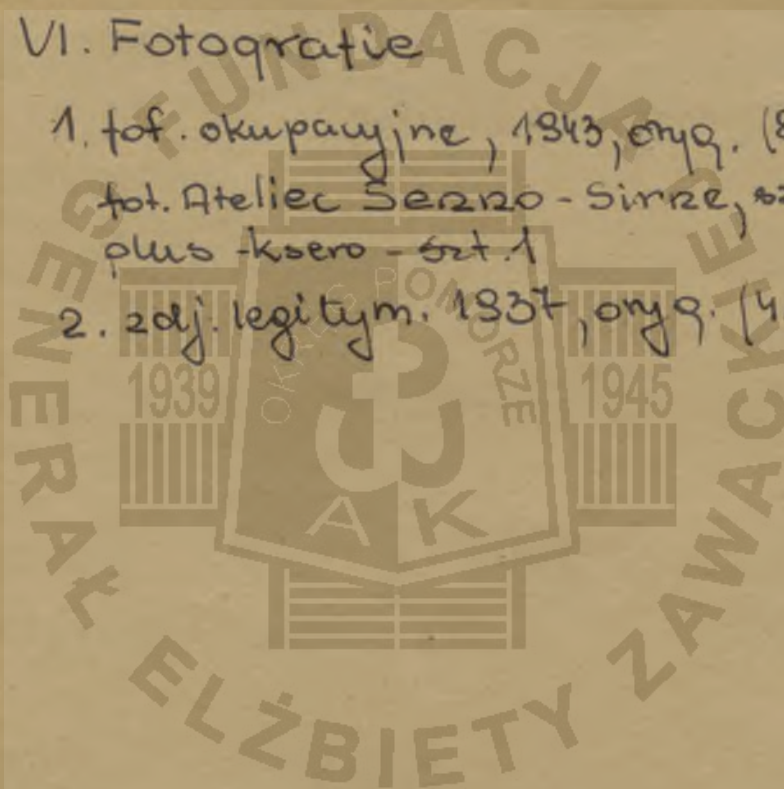 VI. Fotografie
1. fot. okupacyjne, 1943, oryg. (8
fot. Atelier Senno - Sirne, sz
plus - ksero - szt. 1
2. zdj. legitym. 1937, oryg. (4
FUNDACJA
GENERAŁ ELŻBIETY ZAWACKIEJ
OKRĘG POMORZE
1939 1945
A K